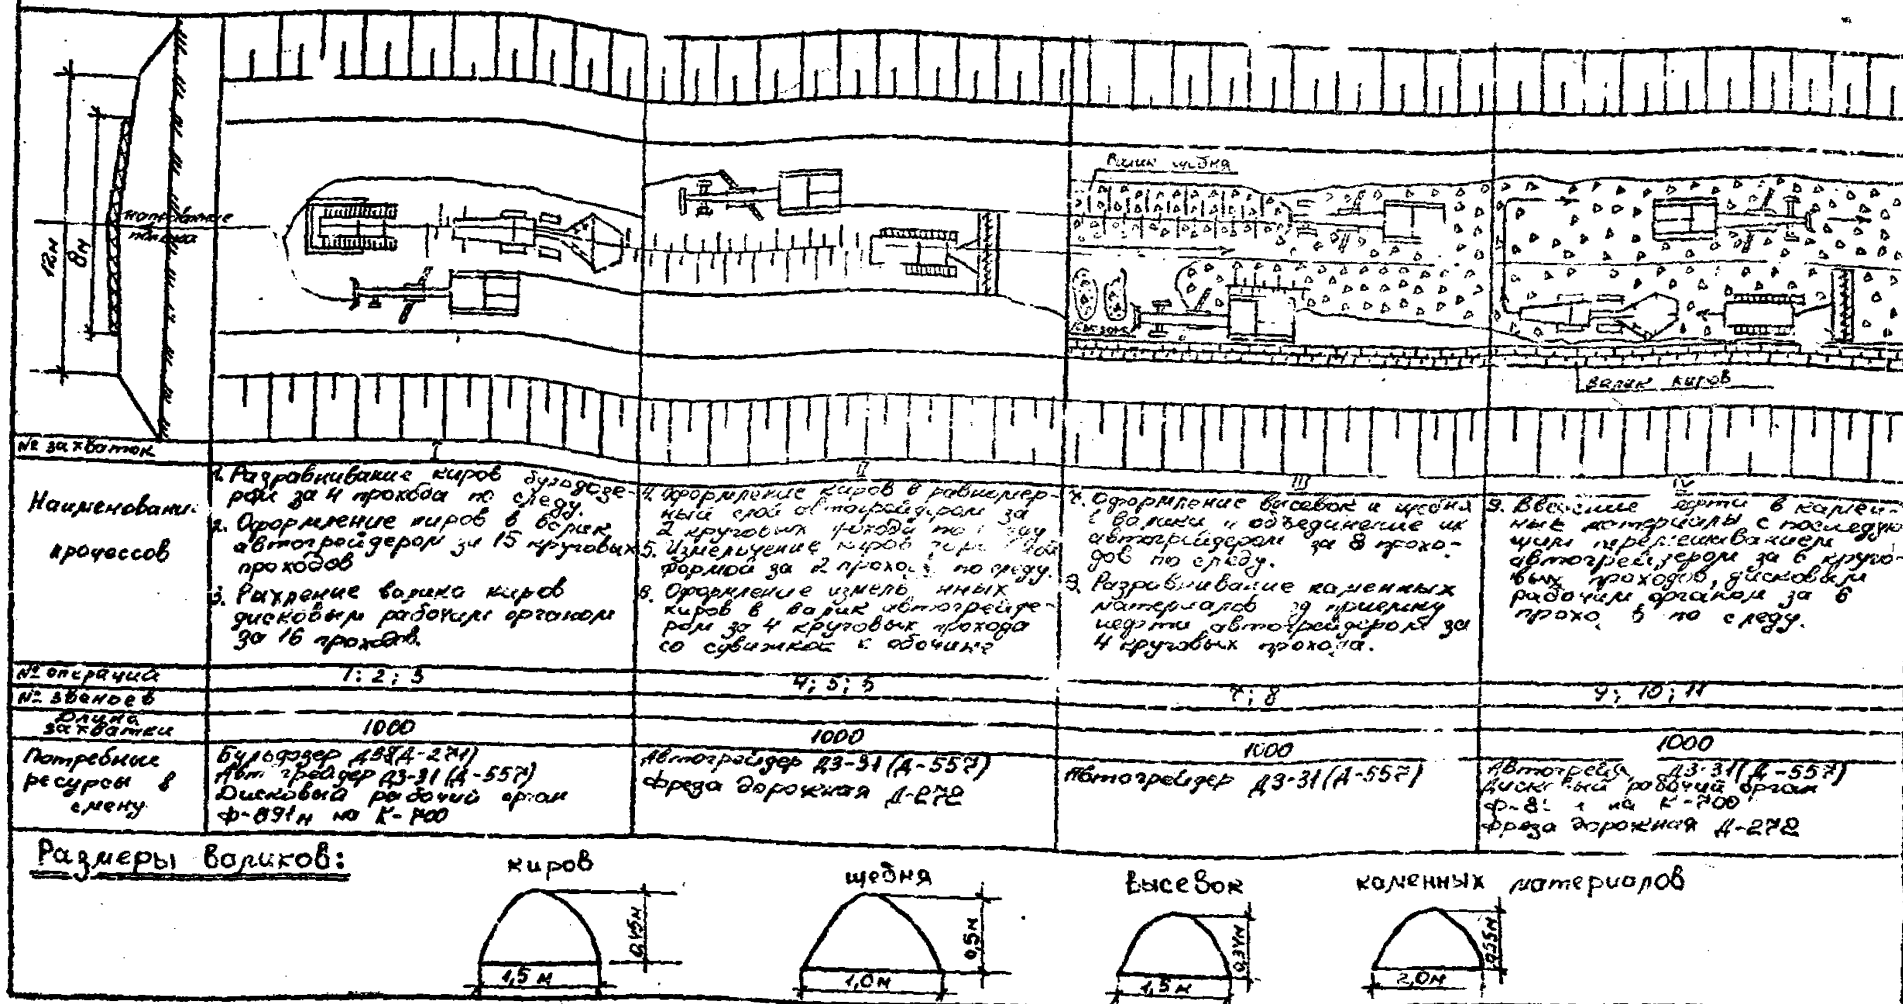 12м
8м
направление
потока
Валик щебня
Высевок
Валик киров
№ захваток
I
II
III
IV
Наименование
процессов
1. Разравнивание киров бульдозе-
ром за 4 прохода по следу.
2. Оформление киров в валик
автогрейдером за 15 круговых
проходов
3. Рыхление валика киров
дисковым рабочим органом
за 16 проходов.
4. Оформление киров в равномер-
ный слой автогрейдером за
2 круговых прохода по следу
5. Измельчение киров
фрезой за 2 прохода по следу.
6. Оформление измель нных
киров в валик автогрейде-
ром за 4 круговых прохода
со сдвижкой к обочине
7. Оформление высевок и щебня
в валики и объединение их
автогрейдером за 8 прохо-
дов по следу.
9. Разравнивание каменных
материалов приемку
нефти автогрейдером за
4 круговых прохода.
9. Введение нефти в камен-
ные материалы с последую-
щим перемешиванием
автогрейдером за 6 круго-
вых проходов, дисковым
рабочим органом за 6
прохо в по следу.
№ операций
1; 2; 3
4; 5; 5
7; 8
9; 10; 11
№ звеньев
Длина
захватки
1000
1000
1000
1000
Потребные
ресурсы в
смену
Бульдозер (Д-271)
Автогрейдер ДЗ-31 (Д-557)
Дисковый рабочий орган
Ф-891м на К-700
Автогрейдер ДЗ-31 (Д-557)
Фреза дорожная Д-272
Автогрейдер ДЗ-31 (Д-557)
Автогрейд ДЗ-31 (Д-557)
Дисковый рабочий орган
на К-700
Фреза дорожная Д-272
Размеры валиков:
киров
щебня
высевок
каменных материалов
0,45м
1,5м
0,5м
1,0м
0,34м
1,5м
0,55м
2,0м